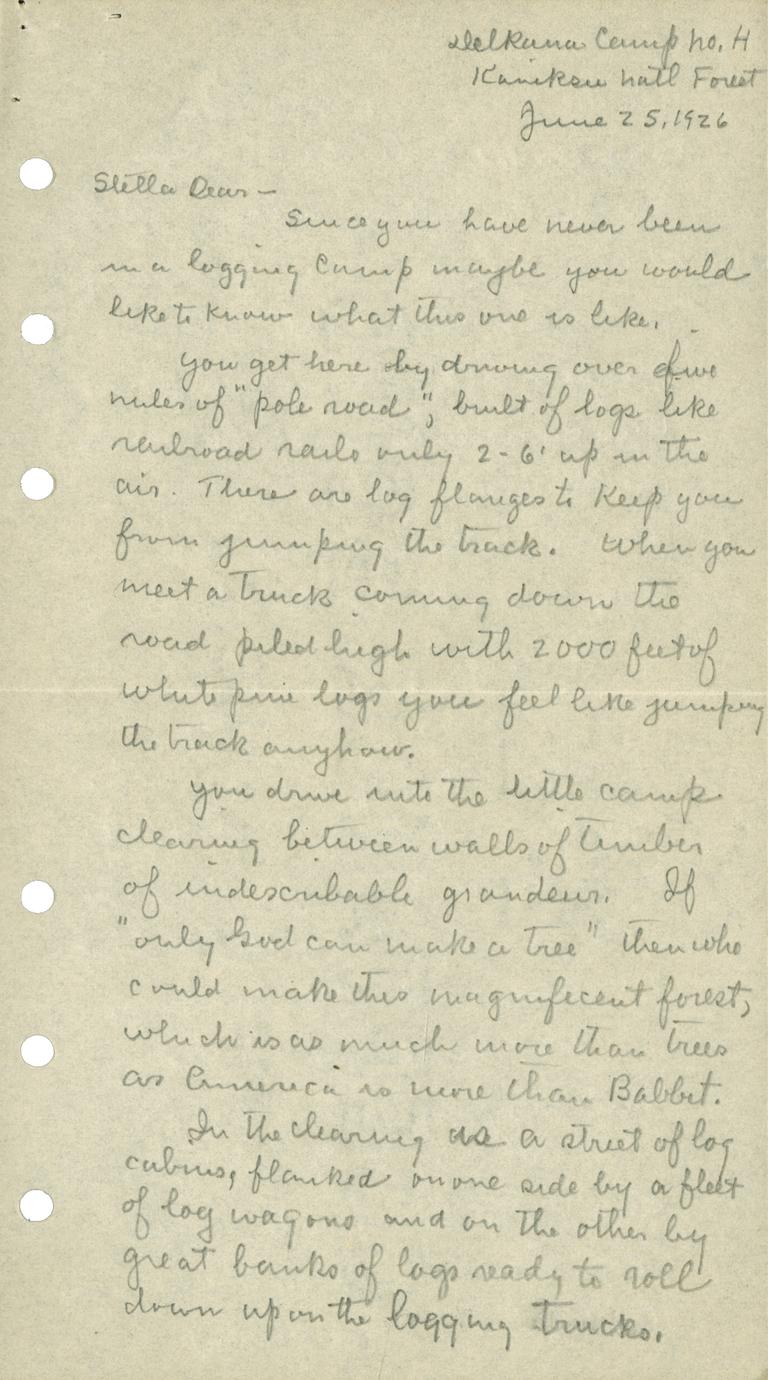 Dalkena Camp No. 4
Kaniksu Natl Forest
June 25, 1926
Stella Dear —
Since you have never been
in a logging camp maybe you would
like to know what this one is like.
You get here by driving over five
miles of "pole road", built of logs like
railroad rails only 2-6' up in the
air. There are log flanges to keep you
from jumping the track. When you
meet a truck coming down the
road piled high with 2000 feet of
white pine logs you feel like jumping
the track anyhow.
You drive into the little camp
clearing between walls of timber
of indescribable grandeur. If
"only God can make a tree" then who
could make this magnificent forest,
which is as much more than trees
as America is more than Babbit.
In the clearing is a street of log
cabins, flanked on one side by a fleet
of log wagons and on the other by
great banks of logs ready to roll
down upon the logging trucks.